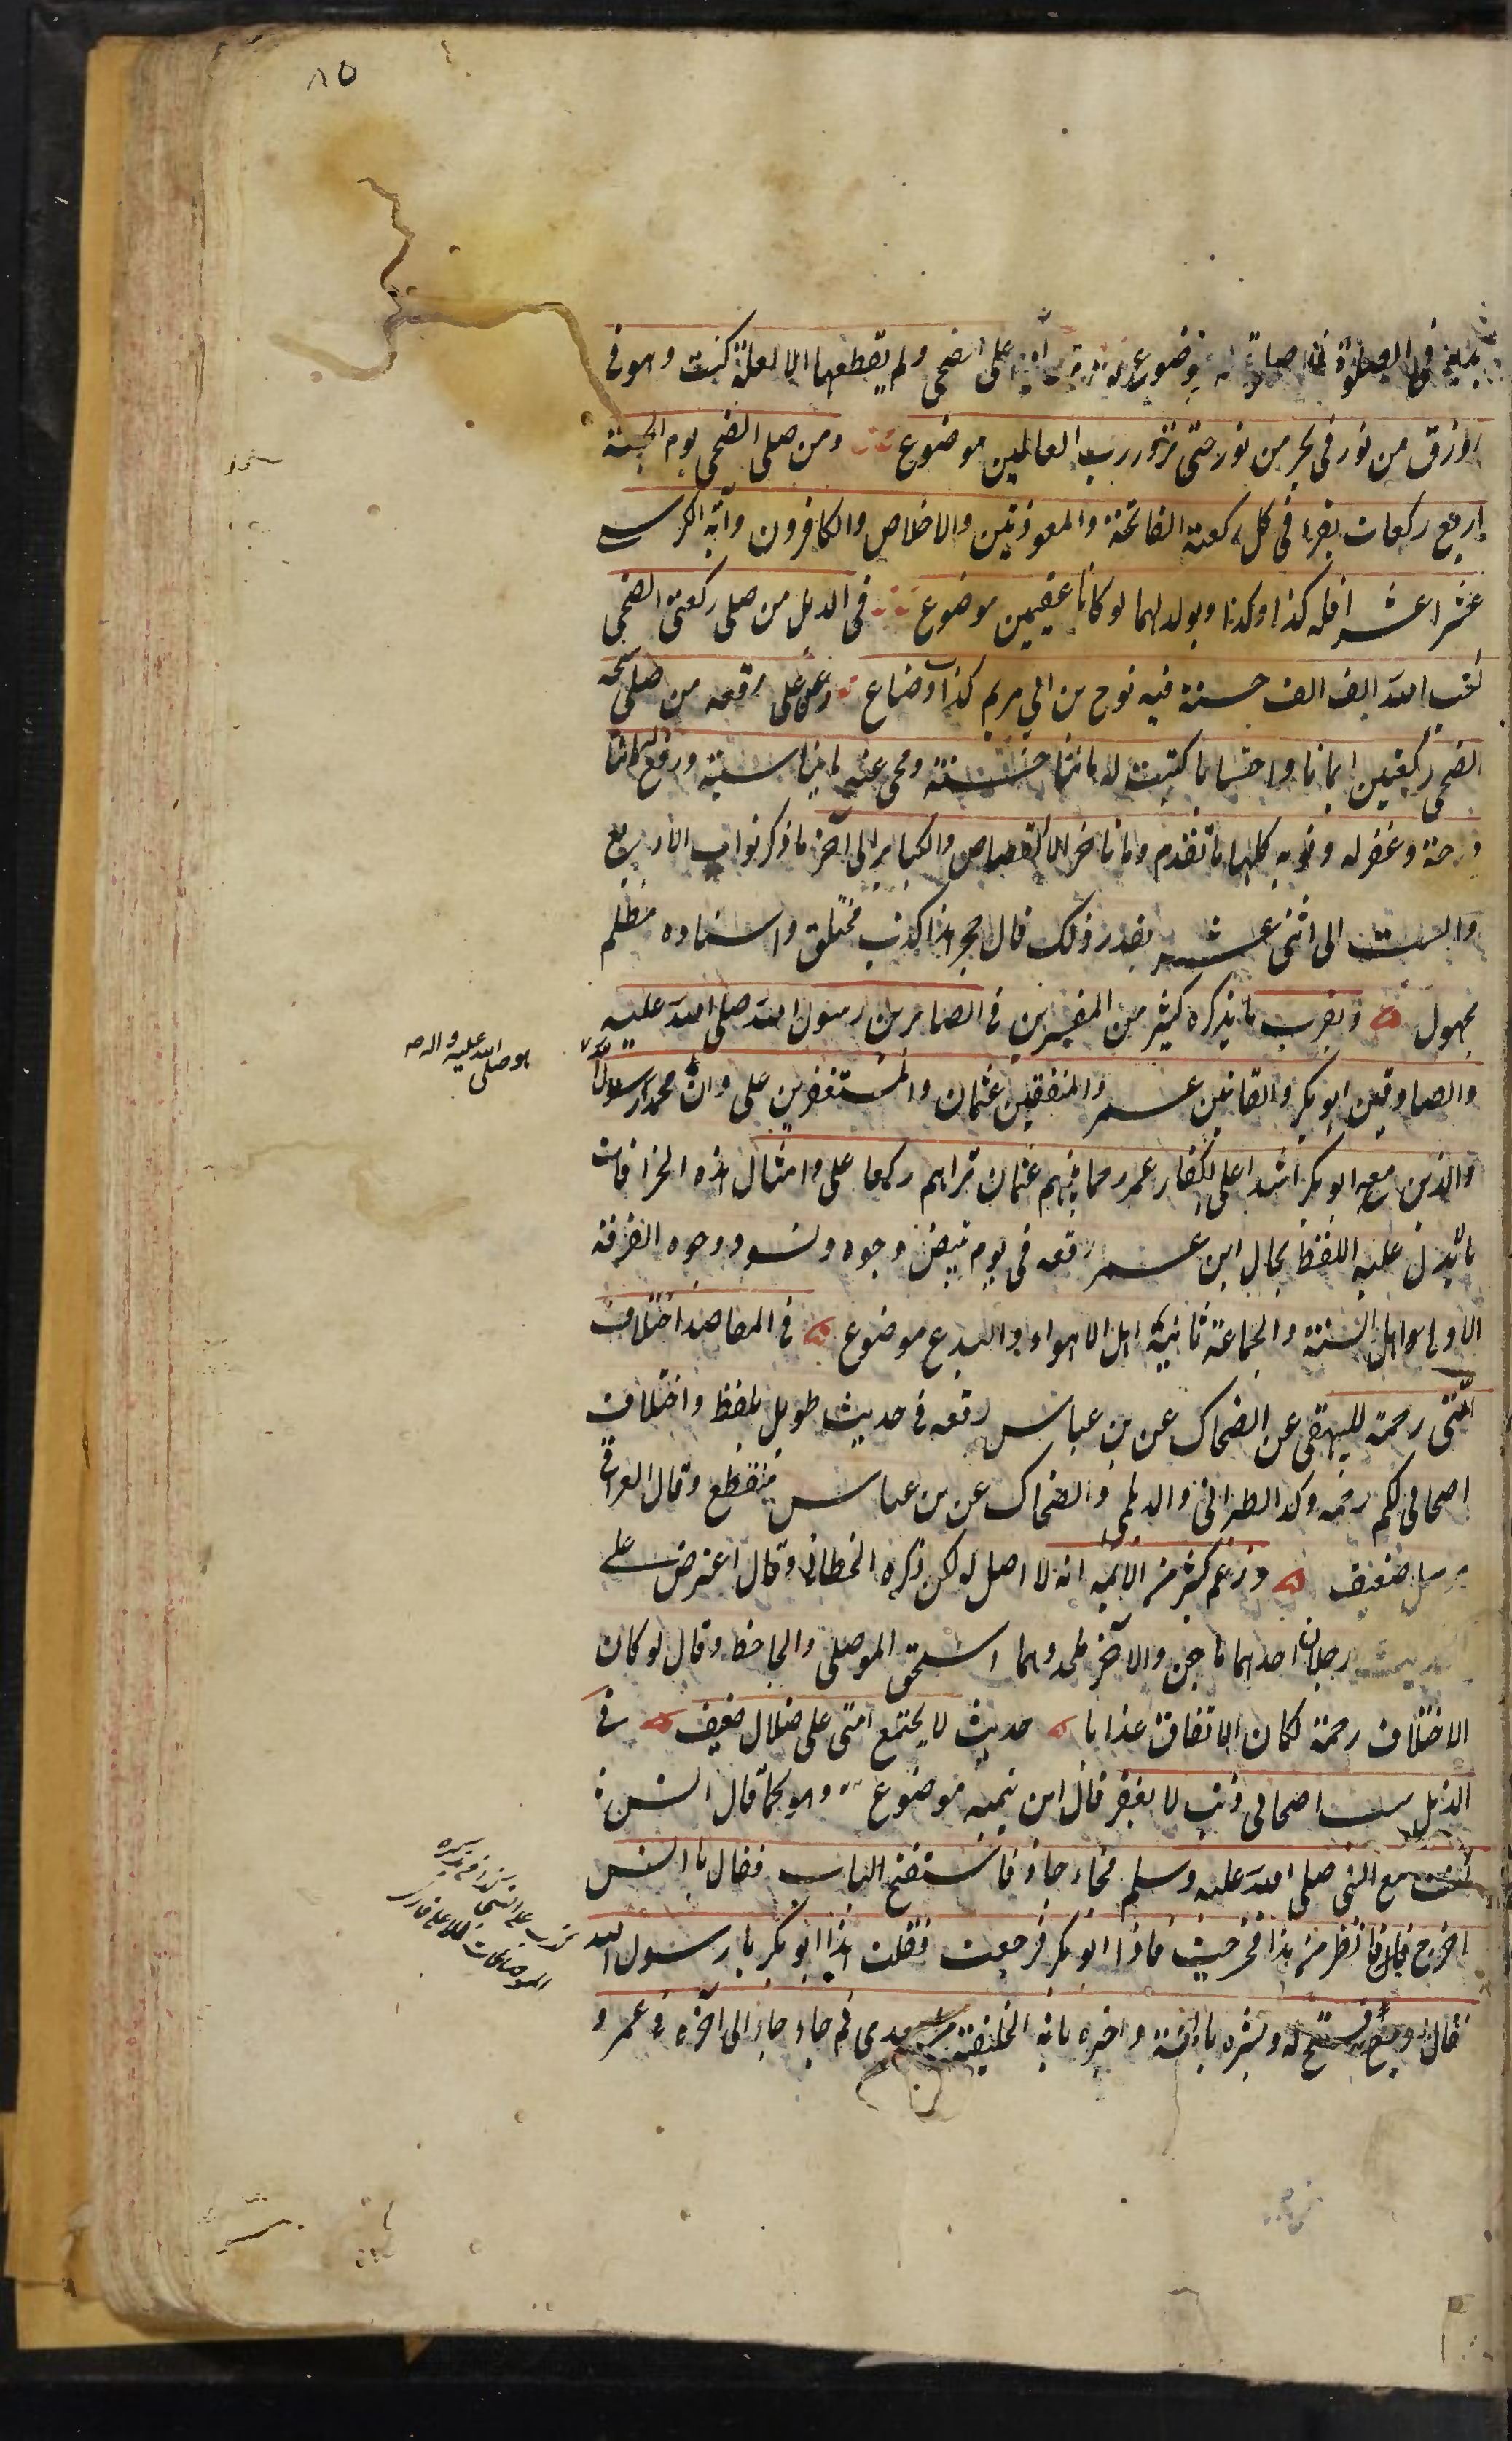 ٨٥
يديه في الصلوة فلا صلوة له موضوع على الضحى ولم يقطعها الا لعلة كنت وهو في
زورق من نور في بحر من نور حتى نزور رب العالمين موضوع ومن صلى الضحى يوم الجمعة
اربع ركعات يقرء في كل ركعة الفاتحة والمعوذتين والاخلاص والكافرون وآية الكرسي
عشرا عشرا فله كذا وكذا ويولد لهما لو كانا عقيمين موضوع في الذيل من صلى ركعتي الضحى
كتب الله الف الف حسنة فيه نوح بن ابي مريم كذا وضاع وعن على رفعه من صلى سبحة
الضحى ركعتين ايمانا واحتسابا كتبت له مائتا حسنة ومحى عنه مائتا سيئة ورفع له مائتا
درجة وغفر له ذنوبه كلها ما تقدم وما تاخر الا القصاص والكباير الى آخر ما ذكر ثواب الاربع
والست الى اثنى عشر بقدر ذلك قال حجر هذا كذب مختلق واسناده مظلم
مجهول ويقرب ما يذكره كثير من المفسرين في الصابرين رسول الله صلى الله عليه
والصادقين ابو بكر والقانتين عمر والمنفقين عثمان والمستغفرين على وان محمد رسول الله
والذين معه ابو بكر اشداء على الكفار عمر رحماء بينهم عثمان تراهم ركعا على وامثال هذه الخرافات
ما يدل عليه اللفظ بحال ابن عمر رفعه في يوم تبيض وجوه وتسود وجوه الفرقة
الاولى اهل السنة والجماعة ثانية اهل الاهواء والبدع موضوع في المقاصد اختلاف
امتى رحمة للبيهقى عن الضحاك عن بن عباس رفعه في حديث طويل بلفظ واختلاف
اصحابى لكم رحمة وكذا الطبرانى والديلمى والضحاك عن بن عباس منقطع وقال العراقى
مرسل ضعيف وزعم كثير من الائمة انه لا اصل له لكن ذكره الخطابى وقال اعترض على
الحديث رجلان احدهما ماجن والاخر ملحد وهما اسحق الموصلى والجاحظ وقال لو كان
الاختلاف رحمة لكان الاتفاق عذابا حديث لا يجتمع امتى على ضلال ضعيف في
الذيل سب اصحابى ذنب لا يغفر قال ابن تيمية موضوع وهو كما قال انس
كنت مع النبي صلى الله عليه وسلم فجاء جاء فاستفتح الباب فقال يا انس
اخرج فانظر من هذا فخرجت فاذا ابو بكر فرجعت فقلت هذا ابو بكر يا رسول الله
فقال ارجع فافتح له وبشره بالجنة واخبره بانه الخليفة من بعدى ثم جاء جاء الى آخره في عمر و
هو صلى الله عليه واله